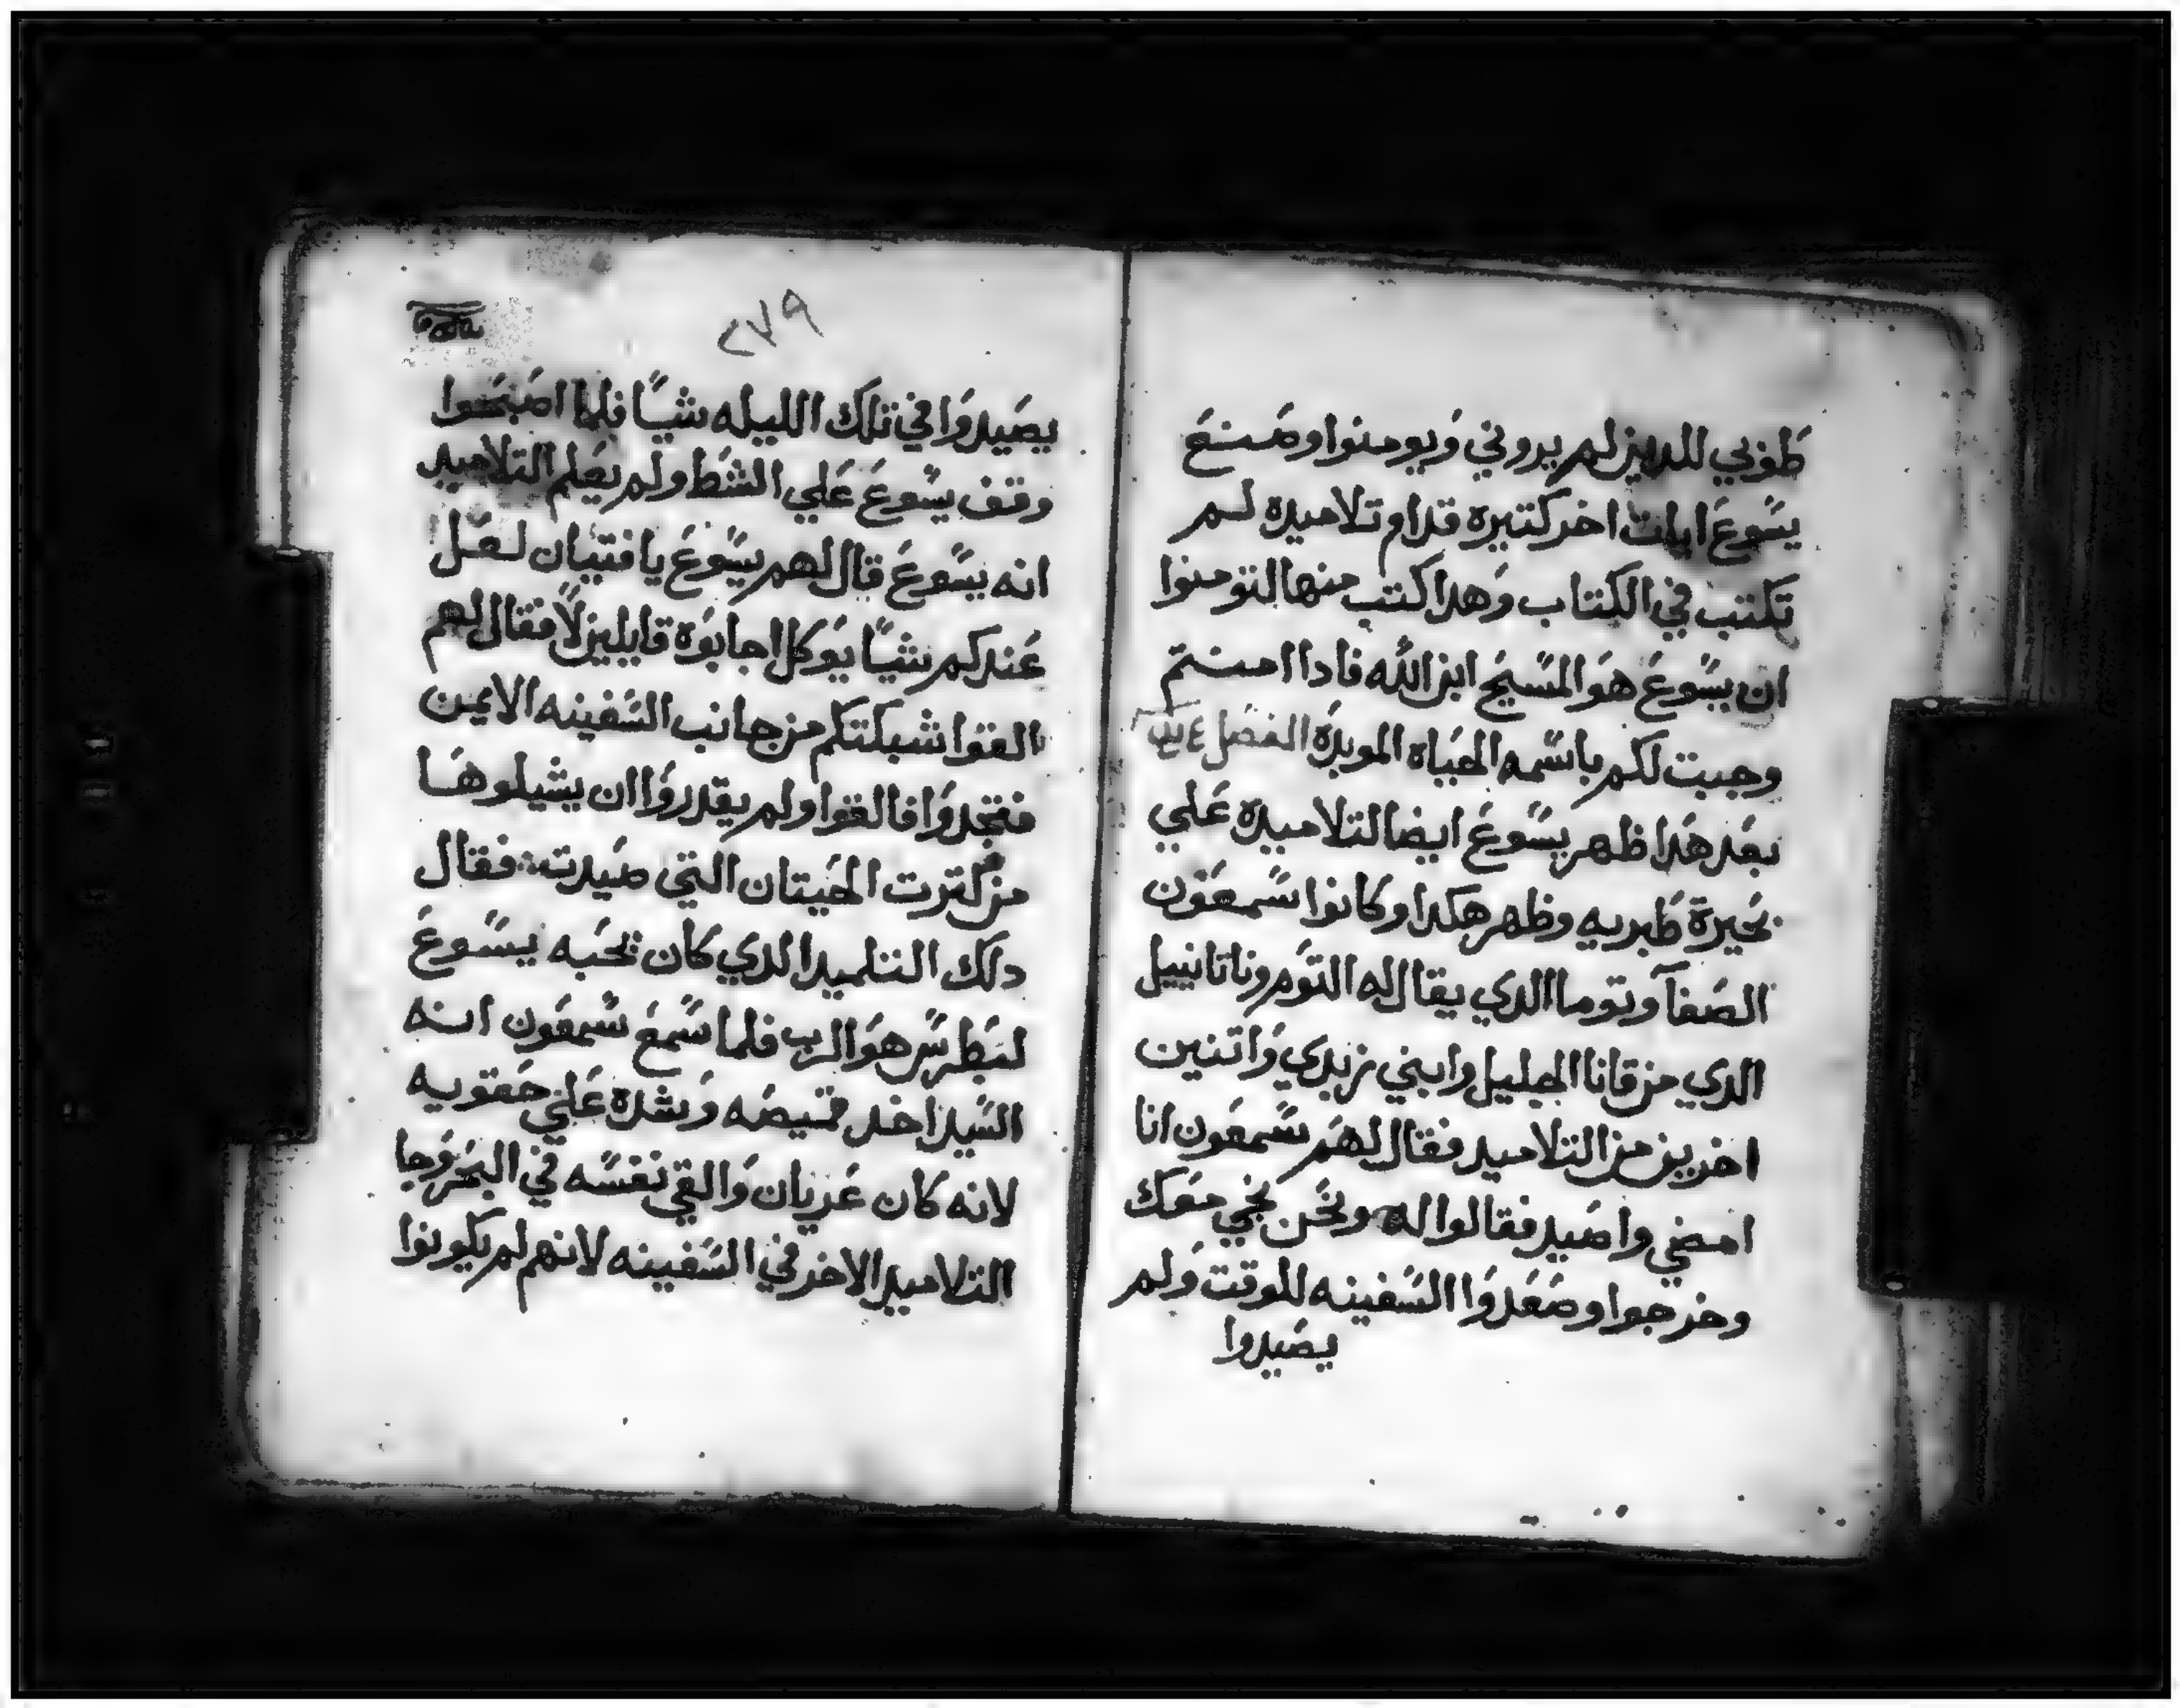 طوبي للدين لم يروني ويومنوا وصنع
يسوع ايات اخر كتيره قدام تلاميده لم
تكتب في الكتاب وهدا كتب منها لتومنوا
ان يسوع هو المسيح ابن الله فادا امنتم
وجبت لكم باسمه الحياه الموبده الفصل
بعد هدا ظهر يسوع ايضا لتلاميده علي
بحيرة طبريه وظهر هكدا وكانوا سمعون
الصفا وتوما الدي يقال له التوم وناتانييل
الدي من قانا الجليل وابني زبدي واتنين
اخرين من التلاميد فقال لهم سمعون انا
امضي واصيد فقالوا له ونحن نجي معك
وخرجوا وصعدوا السفينه للوقت ولم
يصيدوا
٢٧٩
يصيدوا في تلك الليله شيا فلما اصبحوا
وقف يسوع علي الشط ولم يعلم التلاميد
انه يسوع قال لهم يسوع يا فتيان لعل
عندكم شيا يوكل اجابوه قايلين لا فقال لهم
القوا شبكتكم من جانب السفينه الايمن
فتجدوا فالقوا ولم يقدروا ان يشيلوها
من كترت الحيتان التي صيدت فقال
دلك التلميد الدي كان يحبه يسوع
لبطرس هو الرب فلما سمع سمعون انه
السيد اخد قميصه وشده علي حقويه
لانه كان عريان والقي نفسه في البحر وجا
التلاميد الاخر في السفينه لانهم لم يكونوا